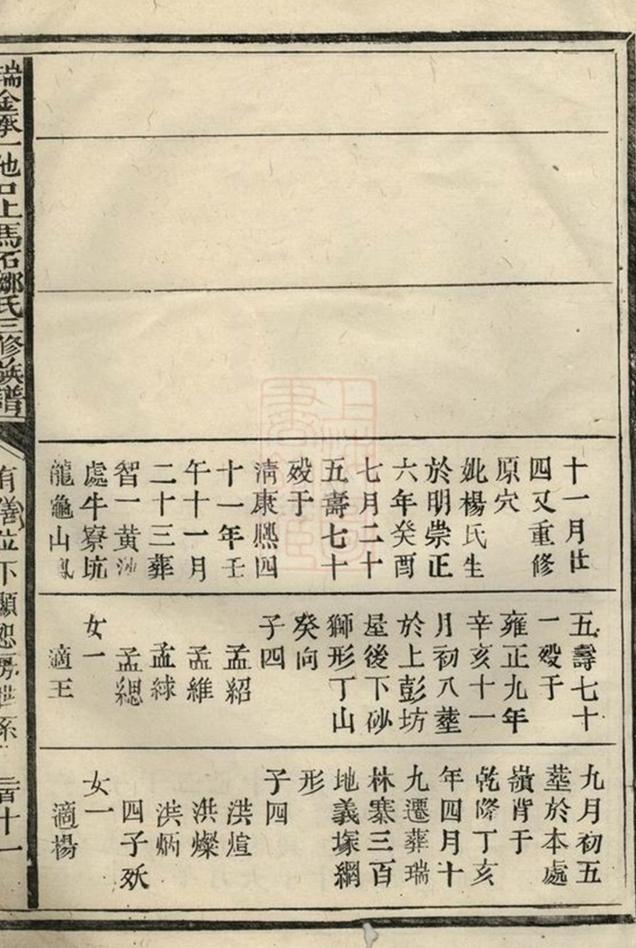 十一月廿
四又重修
原穴
妣楊氏生
於明崇正
六年癸酉
七月二十
五壽七十
歿于
淸康熈四
十一年壬
午十一月
二十三葬
智一黄沙
處牛寮坑
龍龜山鳳
五壽七十
一歿于
雍正九年
辛亥十一
月初八塟
於上彭坊
屋後下砂
獅形丁山
癸向
子四
孟紹
孟維
孟綠
孟總
女一
適王
九月初五
塟於本處
嶺背于
乾隆丁亥
年四月十
九遷葬瑞
林寨三百
地義塚網
形
子四
洪煊
洪燦
洪炳
四子殀
女一
適楊
瑞金承一池口上馬石鄒氏三修族譜
有儀位下顯恕房世系